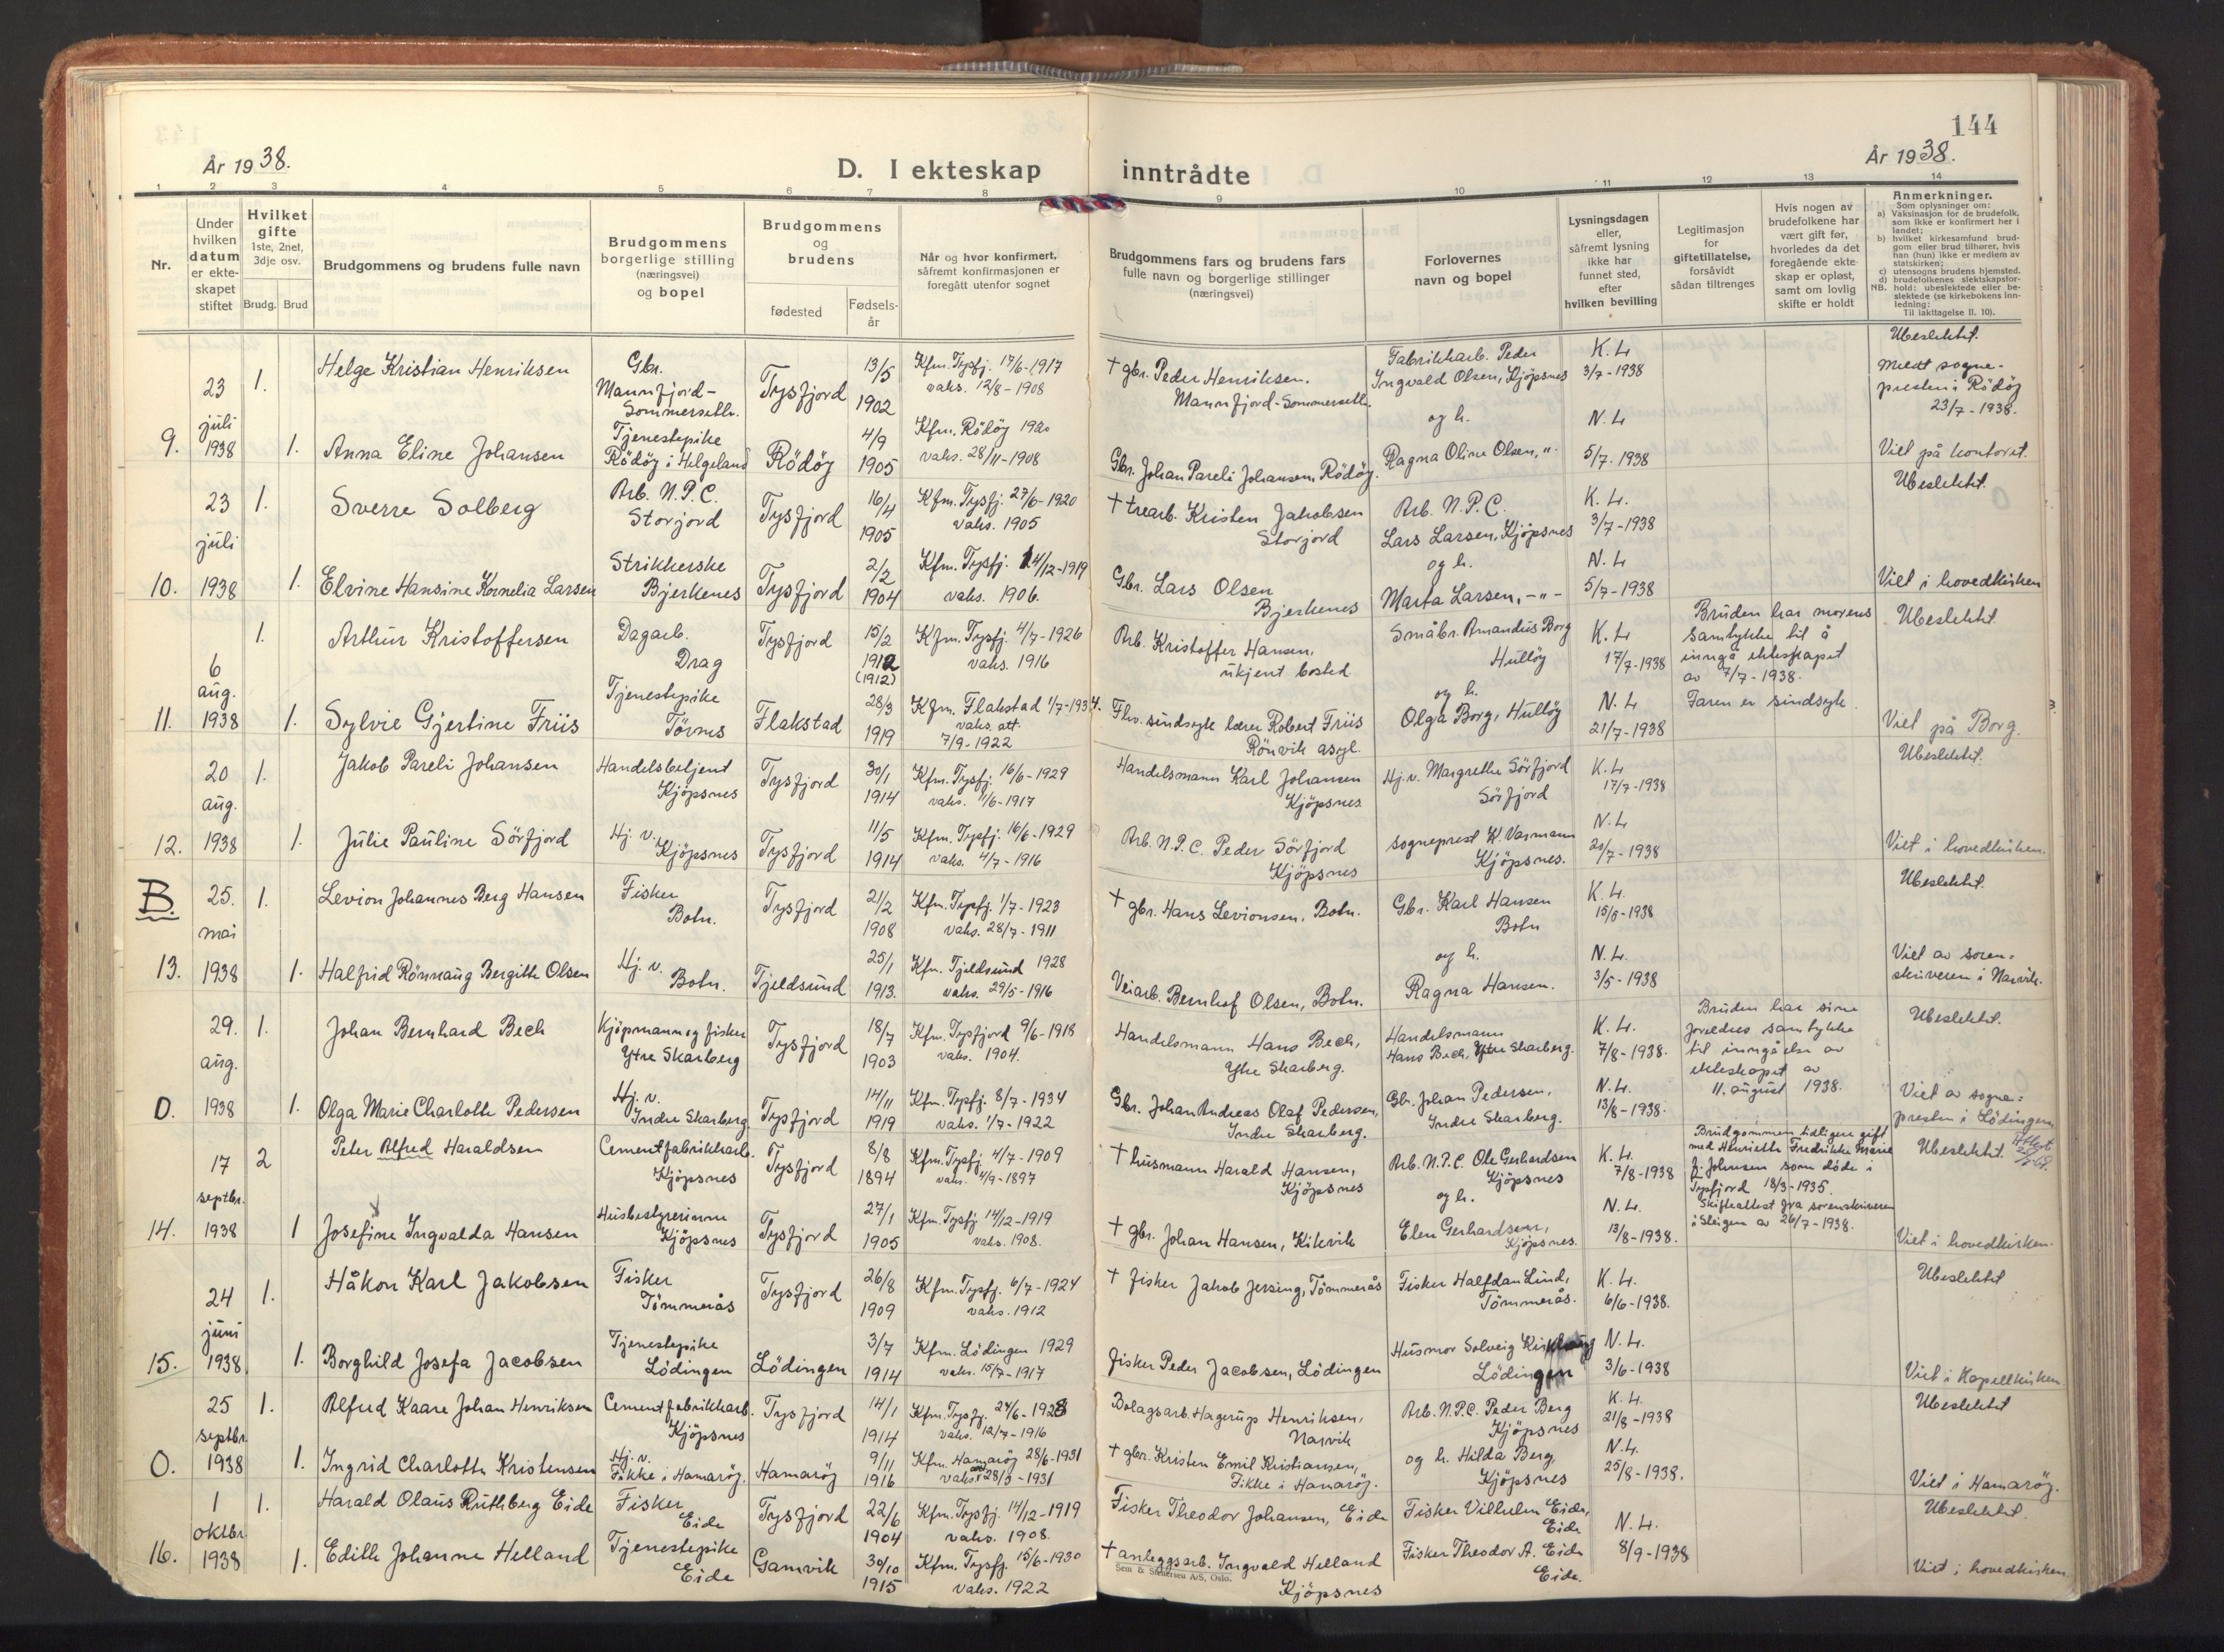 144
År 1938.
År 1938.
D. I ekteskap inntrådte
1 2 3 4 5 6 7 8 9 10 11 12 13 14
Nr.
Under hvilken datum er ekte-skapet stiftet
Hvilket gifte
1ste, 2net, 3dje osv.
Brudg. Brud
Brudgommens og brudens fulle navn
Brudgommens borgerlige stilling (næringsvei) og bopel
Brudgommens og brudens
fødested
Fødsels-år
Når og hvor konfirmert, såfremt konfirmasjonen er foregått utenfor sognet
Brudgommens fars og brudens fars fulle navn og borgerlige stillinger (næringsvei)
Forlovernes navn og bopel
Lysningsdagen eller, såfremt lysning ikke har funnet sted, efter hvilken bevilling
Legitimasjon for giftetillatelse, forsåvidt sådan tiltrenges
Hvis nogen av brudefolkene har vært gift før, hvorledes da det foregående ekte-skap er opløst, samt om lovlig skifte er holdt
Anmerkninger.
Som oplysninger om:
a) Vaksinasjon for de brudefolk, som ikke er konfirmert her i landet;
b) hvilket kirkesamfund brud-gom eller brud tilhører, hvis han (hun) ikke er medlem av statskirken;
c) utensogns brudens hjemsted.
d) brudefolkenes slektskapsfor-hold: ubeslektede eller be-slektede (se kirkebokens inn-ledning:
NB.
Til iakttagelse II. 10).
9. 23 juli 1938
1. Helge Kristian Henriksen
Gbr. Mannfjord-Sommerseth.
Tysfjord 13/5 1902
Kfm. Tysfj. 17/6-1917
vaks. 12/8-1908
† gbr. Peder Henriksen. Mannfjord-Sommerseth.
Fabrikkarb. Peder Ingvald Olsen, Kjöpsnes
K. L. 3/7-1938
Ubeslektet.
Meldt sogne-presten i Rödöy 23/7-1938.
1. Anna Eline Johansen
Tjenestepike Rödöy i Helgeland
Rödöy 4/9 1905
Kfm. Rödöy 1920
vaks. 28/11-1908
Gbr. Johan Pareli Johansen, Rödöy.
og h. Ragna Oline Olsen, "
N. L. 5/7-1938
Viet på kontoret.
10. 23 juli 1938
1. Sverre Solberg
Arb. N.P.C. Storjord
Tysfjord 16/4 1905
Kfm. Tysfj. 27/6-1920
vaks. 1905
† trearb. Kristen Jakobsen Storjord
Arb. N.P.C. Lars Larsen, Kjöpsnes
K. L. 3/7-1938
Ubeslektet.
1. Elvine Hansine Kornelia Larsen
Strikkerske Bjerkenes
Tysfjord 2/2 1904
Kfm. Tysfj. 14/12-1919
vaks. 1906.
Gbr. Lars Olsen Bjerkenes
og h. Marta Larsen, -"-
N. L. 5/7-1938
Viet i hovedkirken
11. 6 aug. 1938
1. Arthur Kristoffersen
Dagarb. Drag
Tysfjord 15/2 1912 (1912)
Kfm. Tysfj. 4/7-1926
vaks. 1916
Arb. Kristoffer Hansen, ukjent bosted.
Småbr. Amandus Borg Hulløy
K. L. 17/7-1938
Bruden har morens samtykke til å inngå ekteskapet av 7/7-1938.
Faren er sindsyk.
Ubeslektet.
1. Sylvie Gjertine Friis
Tjenestepike Törnes
Flakstad 28/3 1919
Kfm. Flakstad 1/7-1934.
vaks. att. 7/9-1922
Fhv. sindsyk lærer Robert Friis Rönvik asyl.
og h. Olga Borg, Hulløy
N. L. 21/7-1938
Viet på Borg.
12. 20 aug. 1938
1. Jakob Pareli Johansen
Handelsbetjent Kjöpsnes
Tysfjord 30/1 1914
Kfm. Tysfj. 16/6-1929
vaks. 11/6-1917
Handelsmann Karl Johansen Kjöpsnes
Hj. v. Margrethe Sörfjord Sörfjord
K. L. 17/7-1938
Ubeslektet.
1. Julie Pauline Sörfjord
Hj. v. Kjöpsnes
Tysfjord 11/5 1914
Kfm. Tysfj. 16/6-1929
vaks. 4/7-1916
Arb. N.P.C. Peder Sörfjord Kjöpsnes
sogneprest K. Varmann Kjöpsnes.
N. L. 20/7-1938
Viet i hovedkirken.
B. 13. 25. mai 1938
1. Levion Johannes Berg Hansen
Fisker Botn.
Tysfjord 21/2 1908
Kfm. Tysfj. 1/7-1923
vaks. 28/7-1911
† gbr. Hans Levionsen, Botn.
Gbr. Karl Hansen Botn
K. L. 15/5-1938
Ubeslektet.
1. Halfrid Rönnaug Bergith Olsen
Hj. v. Botn.
Tjeldsund 25/1 1913.
Kfm. Tjeldsund 1928
vaks. 29/5-1916
Veiarb. Bernhof Olsen, Botn.
og h. Ragna Hansen.
N. L. 3/5-1938
Viet av soren-skriveren i Narvik.
O. 29. aug. 1938
1. Johan Bernhard Bech
Kjöpmann og fisker Ytre Skarberg
Tysfjord 18/7 1903
Kfm. Tysfjord 9/6-1918
vaks. 1904.
Handelsmann Hans Bech, Ytre Skarberg.
Handelsmann Hans Bech, Ytre Skarberg.
K. L. 7/8-1938.
Bruden har sine foreldres samtykke til inngåelse av ekteskapet av 11. august 1938.
Ubeslektet.
1. Olga Marie Charlotte Pedersen
Hj. v. Indre Skarberg.
Tysfjord 14/11 1919
Kfm. Tysfj. 8/7-1934
vaks. 1/7-1922
Gbr. Johan Andreas Olaf Pedersen, Indre Skarberg.
Gbr. Johan Pedersen, Indre Skarberg.
N. L. 13/8-1938.
Viet av sogne-presten i Lödingen
14. 17 septbr. 1938
2 Peter Alfred Haraldsen
Cementfabrikkarb. Kjöpsnes
Tysfjord 8/8 1894
Kfm. Tysfj. 4/7-1909
vaks. 4/9-1897
† husmann Harald Hansen, Kjöpsnes
Arb. N.P.C. Ole Gerhardsen Kjöpsnes
K. L. 7/8-1938
Brudgommen tidligere gift med Henriette Fredrikke Marie f. Johnsen som döde i Tysfjord 18/3-1935.
Skifteattest fra sorenskriveren i Steigen av 26/7-1938.
Ubeslektet.
1 Josefine Ingvalda Hansen
Husbestyrerinne Kjöpsnes
Tysfjord 27/1 1905
Kfm. Tysfj. 14/12-1919
vaks. 1908.
† gbr. Johan Hansen, Kikvik
og h. Elen Gerhardsen, Kjöpsnes.
N. L. 13/8-1938.
Viet i hovedkirken.
15. 24 juni 1938.
1. Håkon Karl Jakobsen
Fisker Tömmerås
Tysfjord 26/8 1909
Kfm. Tysfj. 6/7-1924
vaks. 1912
† fisker Jakob Jersing, Tömmerås
Fisker Halfdan Lind, Tömmerås.
K. L. 6/6-1938.
Ubeslektet
1. Borghild Josefa Jacobsen
Tjenestepike Lödingen
Lödingen 3/7 1914
Kfm. Lödingen 1929
vaks. 15/7-1917
Fisker Peder Jacobsen, Lödingen
Husmor Solveig Lödingen
N. L. 3/6-1938
Viet i Kapellkirken
O. 25 septbr. 1938
1. Alfred Kaare Johan Henriksen
Cementfabrikkarb. Kjöpsnes
Tysfjord 14/1 1914
Kfm. Tysfj. 24/6-1928
vaks. 12/7-1916
Bolagsarb. Hagerup Henriksen, Narvik
Arb. N.P.C. Peder Berg Kjöpsnes
K. L. 21/8-1938
Ubeslektet
1. Ingrid Charlotte Kristensen
Hj. v. Fikke i Hamaröy.
Hamaröy 9/11 1916
Kfm. Hamaröy 28/6-1931
vaks. 28/5-1931
† gbr. Kristen Emil Kristiansen, Fikke i Hamaröy.
og h. Hilda Berg, Kjöpsnes
N. L. 25/8-1938.
Viet i Hamaröy.
16. 1 oktbr. 1938
1. Harald Olaus Ruthberg Eide
Fisker Eide
Tysfjord 22/6 1904
Kfm. Tysfj. 14/12-1919
vaks. 1908.
Fisker Theodor Johansen, Eide
Fisker Vilhelm Eide, Eide
N. L. 8/9-1938
Ubeslektet.
1. Edith Johanne Helland
Tjenestepike Eide
Gamvik 30/10 1915
Kfm. Tysfj. 15/6-1930
vaks. 1922
† anleggsarb. Ingvald Helland Kjöpsnes
Fisker Theodor A. Eide Eide.
Viet i hovedkirken
Sem & Stenersen A/S, Oslo.